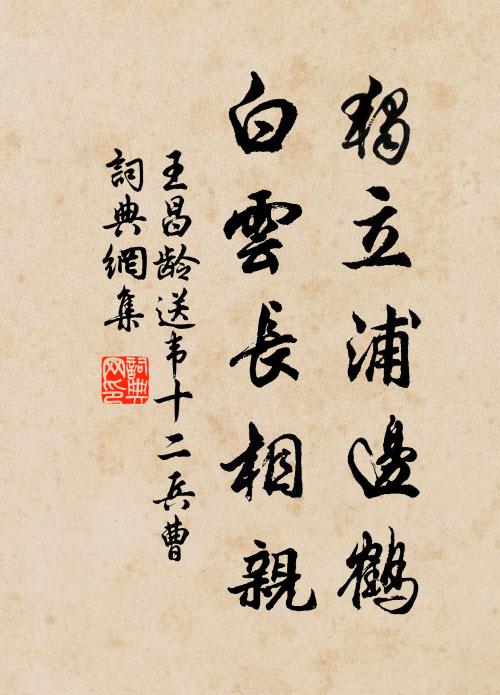 獨立浦邊鶴
白雲長相親
王昌龄送韦十二兵曹
詞典網集
詞典网印